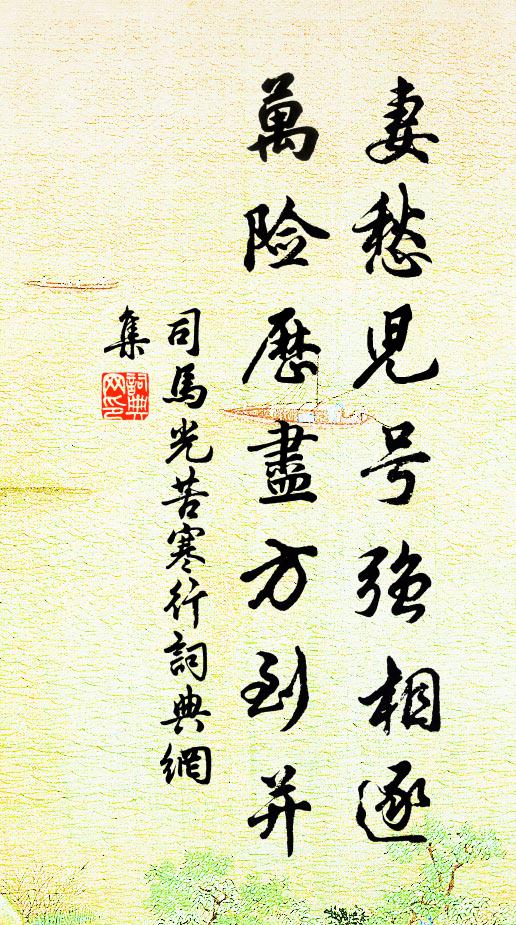 妻愁児号强相逐
萬险歷盡方到并
司馬光苦寒行詞典網
集
詞典
网印